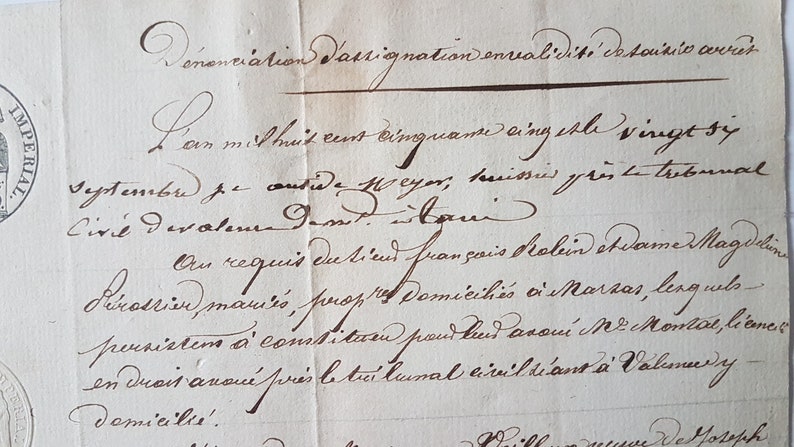 Dénonciation d'assignation en validité de saisie arrêt
IMPERIAL.
L'an mil huit cent cinquante cinq et le vingt six
septembre je Meyer, huissier près le tribunal
Civil de valence dem.t à
Au requis du sieur françois Robin et dame Magdeleine
mariés, prop.res domiciliés à Marsas, lesquels
persistent à constituer pour leur avoué Me. Montal, licencié
en droit avoué près le tribunal civil séant à Valence y
domicilié.
veuve de Joseph